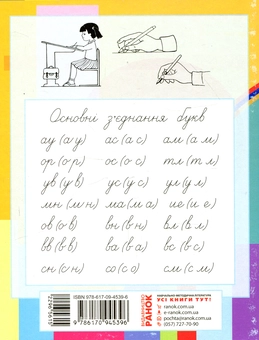 Основні з'єднання букв
ау (а у) ас (а с) ам (а м)
ор (о р) ос (о с) тл (т л)
ув (у в) ус (у с) ул (у л)
мн (м н) ма (м а) ие (и е)
ов (о в) вн (в н) вл (в л)
вв (в в) ва (в а) вс (в с)
сн (с н) со (с о) см (с м)
ISBN 978-617-09-4539-6
9 786170 945396
ВИДАВНИЦТВО
РАНОК
НАВЧАЛЬНО-МЕТОДИЧНА ЛІТЕРАТУРА
УСІ КНИГИ ТУТ!
ranok.com.ua
e-ranok.com.ua
pochta@ranok.com.ua
(057) 727-70-90